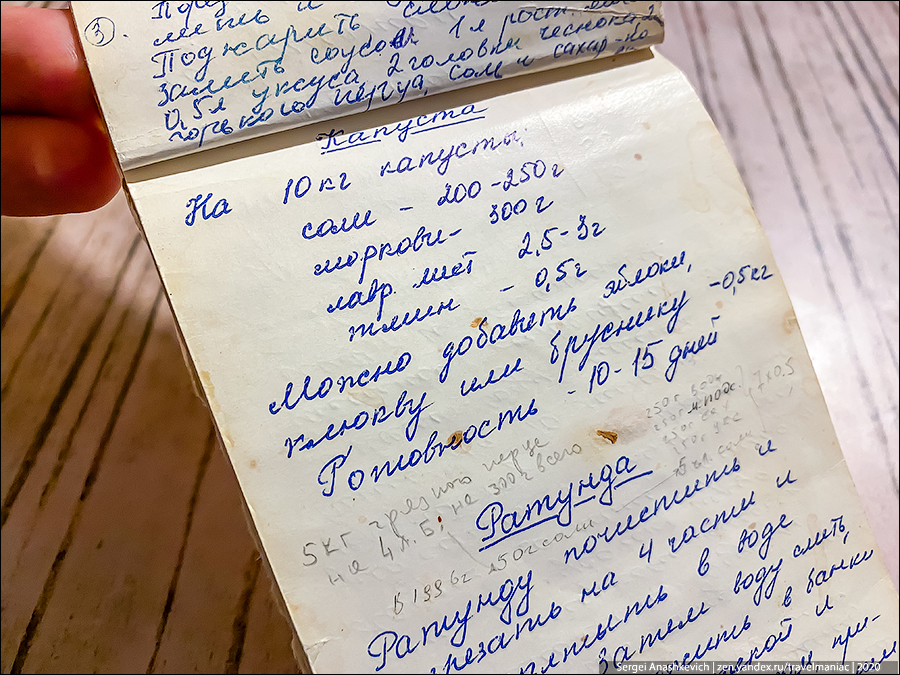 3
мыть и
Поджарить
залить соусом 1 л раст.
0,5 л уксуса, 2 головки чеснока, 2
горького перца, соли и сахар - по
Капуста
На 10 кг капусты:
соли - 200-250г
моркови - 300г
лавр. лист 2,5-3г
тмин - 0,5г
Можно добавить яблоки,
клюкву или бруснику - 0,5кг
Готовность - 10-15 дней
5 кг грязного перца
на 4 л. Б; на 300г всего
В 1996г 250г соли
250г
7x0,5
Ратунда
Ратунду почистить и
резать на 4 части и
в воде
Затем воду слить,
в банки
и
при-
Sergei Anashkevich | zen.yandex.ru/travelmaniac | 2020